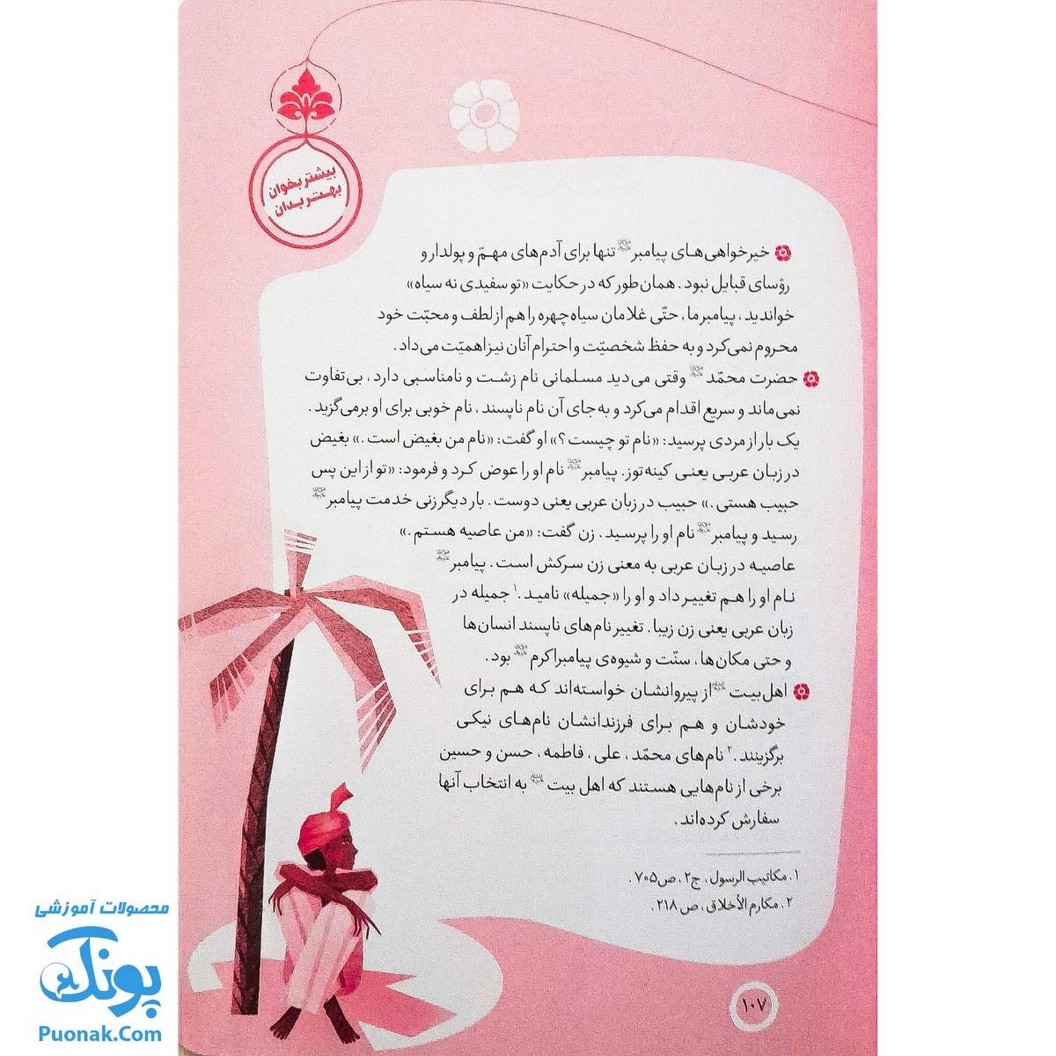 بیشتر بخوان
بهتر بدان
خیرخواهی‌های پیامبر ﷺ تنها برای آدم‌های مهمّ و پولدار و
رؤسای قبایل نبود. همان‌طور که در حکایت «تو سفیدی نه سیاه»
خواندید، پیامبر ما، حتّی غلامان سیاه‌چهره را هم از لطف و محبّت خود
محروم نمی‌کرد و به حفظ شخصیّت و احترام آنان نیز اهمیّت می‌داد.
حضرت محمّد ﷺ وقتی می‌دید مسلمانی نام زشت و نامناسبی دارد، بی‌تفاوت
نمی‌ماند و سریع اقدام می‌کرد و به‌جای آن نام ناپسند، نام خوبی برای او برمی‌گزید.
یک بار از مردی پرسید: «نام تو چیست؟» او گفت: «نام من بغیض است.» بغیض
در زبان عربی یعنی کینه‌توز. پیامبر ﷺ نام او را عوض کرد و فرمود: «تو از این پس
حبیب هستی.» حبیب در زبان عربی یعنی دوست. بار دیگر زنی خدمت پیامبر ﷺ
رسید و پیامبر ﷺ نام او را پرسید. زن گفت: «من عاصیه هستم.»
عاصیه در زبان عربی به معنی زن سرکش است. پیامبر ﷺ
نام او را هم تغییر داد و او را «جمیله» نامید.۱ جمیله در
زبان عربی یعنی زن زیبا. تغییر نام‌های ناپسند انسان‌ها
و حتی مکان‌ها، سنّت و شیوه‌ی پیامبر اکرم ﷺ بود.
اهل‌بیت از پیروانشان خواسته‌اند که هم برای
خودشان و هم برای فرزندانشان نام‌های نیکی
برگزینند.۲ نام‌های محمّد، علی، فاطمه، حسن و حسین
برخی از نام‌هایی هستند که اهل بیت به انتخاب آنها
سفارش کرده‌اند.
۱. مکاتیب الرسول، ج۲، ص۷۰۵.
۲. مکارم الأخلاق، ص ۲۱۸.
۱۰۷
محصولات آموزشی
پونک
Puonak.Com